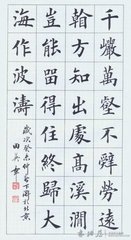 千巖萬壑不辭勞遠
看方知出處高溪澗
豈能留得住終歸大
海作波濤
歲次癸未
於北京
田英章